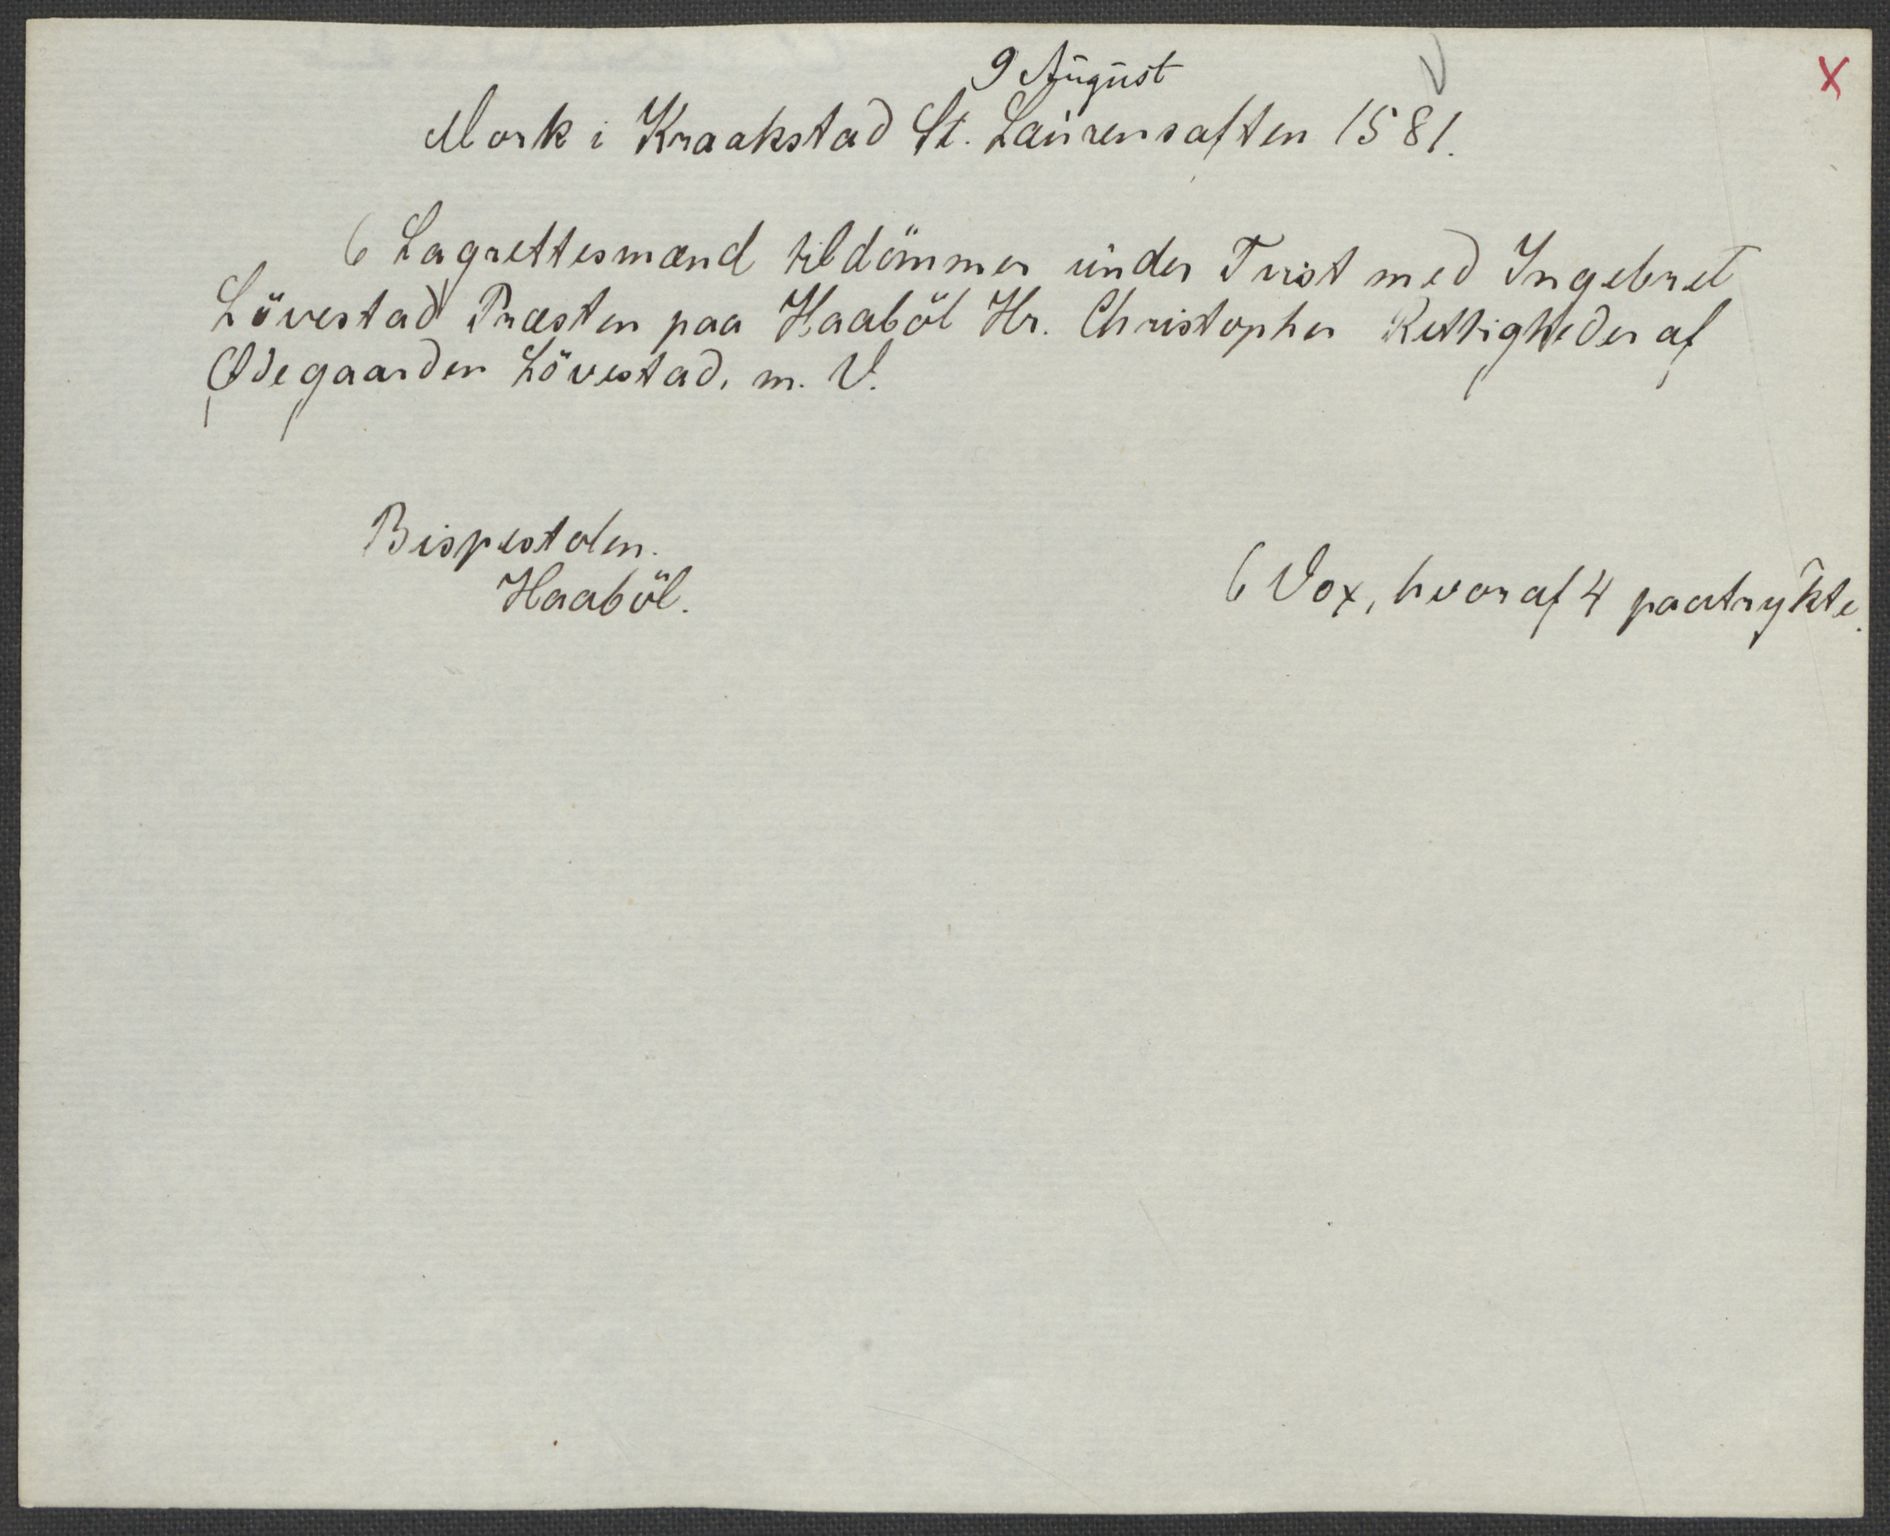 9 August
Mork i Kraakstad St. Laurensaften 1581.
6 Lagrettesmænd tildömmer under Tvist med Ingebret
Lövestad Præsten paa Haaböl Hr. Christopher Rettigheder af
Ödegaarden Lövestad, m. V.
Bispestolen.
Haaböl.
6 Vox, hvoraf 4 paatrykte.